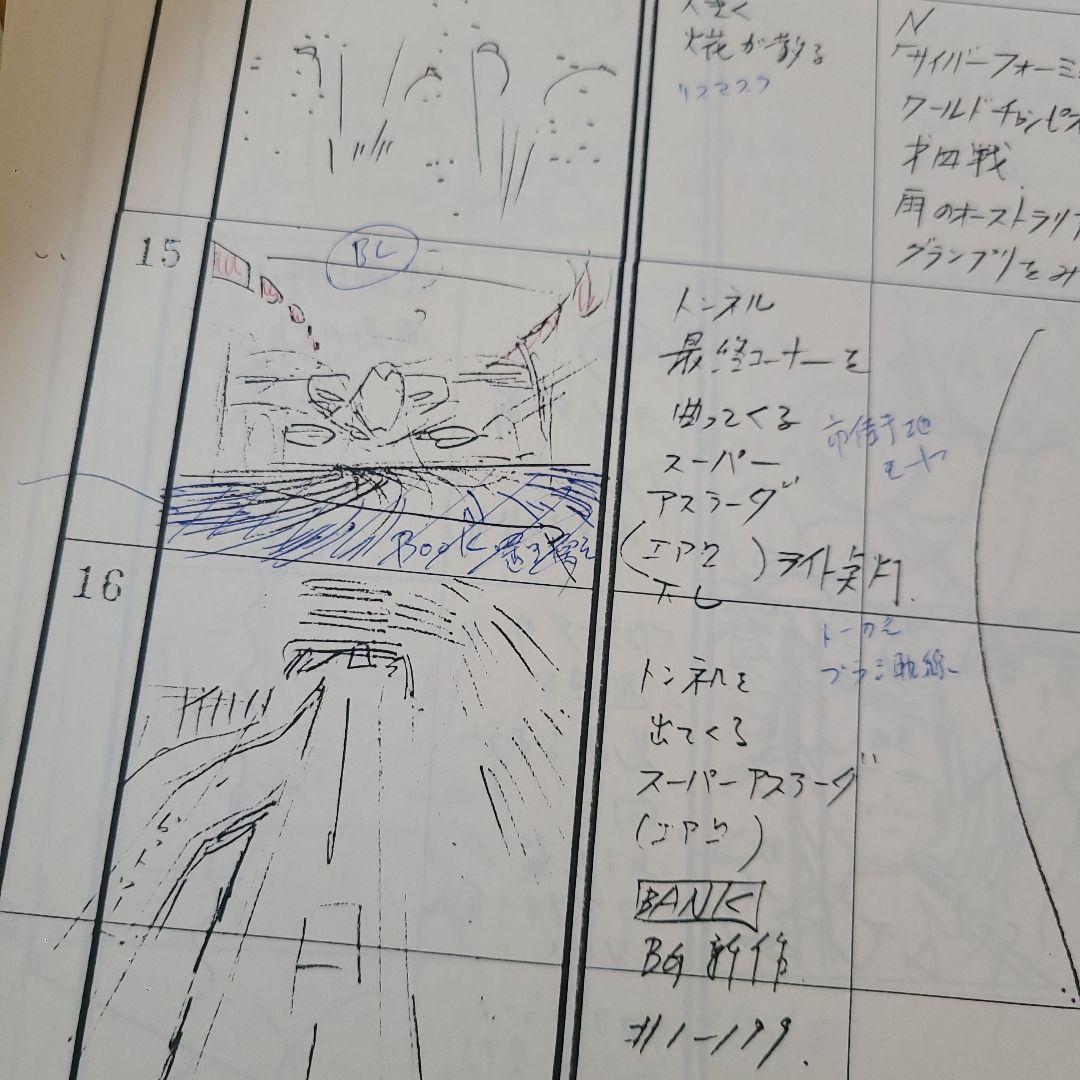 大きく
火花が散る
N
「サイバーフォーミ
ワールドチャンピオ
才四戦
雨のオーストラリア
グランプリをみ
15
BL
トンネル
最終コーナーを
曲ってくる
スーパー
アスラーダ
(エアロ
ライト点灯.
Book
16
トンネルを
出てくる
スーパーアスラーダ
(エアロ)
BANK
BG新作
#1-199.